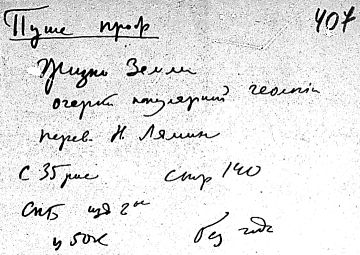 Пуше проф 407
Жизнь Земли
очерки популярной геологіи
перев. Н. Лямин
С 35 рис стр 140
СПБ изд 2ое
ц 50к без года